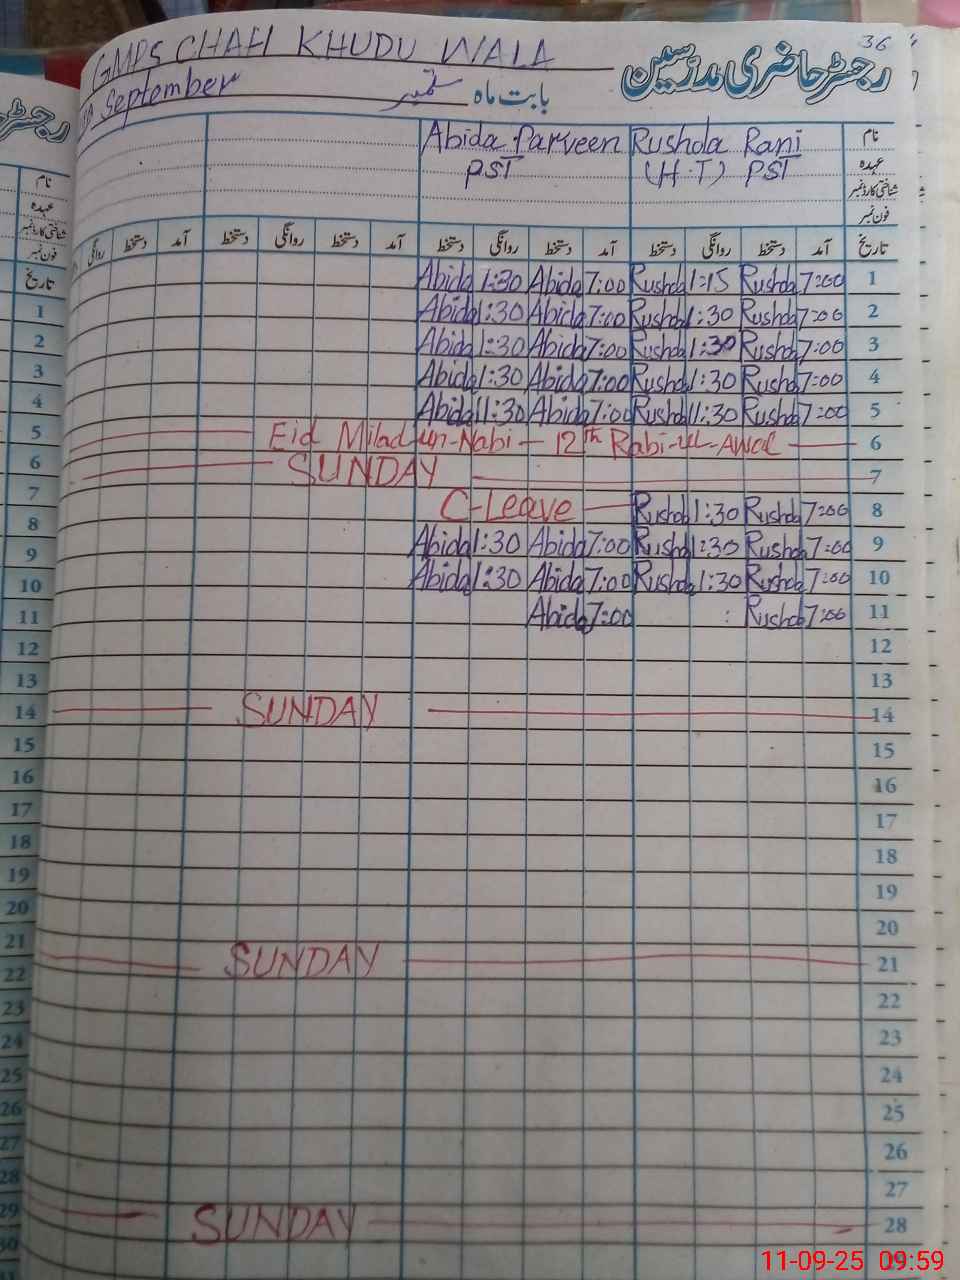 36
GMPS CHAH KHUDU WALA
رجسٹر حاضری مدرسین
September ستمبر بابت ماہ
Abida Parveen Rushda Rani نام
PST (H.T) PST عہدہ
شناختی کارڈ نمبر
فون نمبر
روانگی دستخط آمد دستخط روانگی دستخط آمد دستخط روانگی دستخط آمد دستخط روانگی دستخط آمد تاریخ
Abida 1:30 Abida 7:00 Rushda 1:15 Rushda 7:00 1
Abida 1:30 Abida 7:00 Rushda 1:30 Rushda 7:00 2
Abida 1:30 Abida 7:00 Rushda 1:30 Rushda 7:00 3
Abida 1:30 Abida 7:00 Rushda 1:30 Rushda 7:00 4
Abida 11:30 Abida 7:00 Rushda 11:30 Rushda 7:00 5
Eid Milad un-Nabi - 12th Rabi-ul-Awal 6
SUNDAY 7
C-Leave Rushda 1:30 Rushda 7:00 8
Abida 1:30 Abida 7:00 Rushda 1:30 Rushda 7:00 9
Abida 1:30 Abida 7:00 Rushda 1:30 Rushda 7:00 10
Abida 7:00 : Rushda 7:00 11
12
13
SUNDAY 14
15
16
17
18
19
20
SUNDAY 21
22
23
24
25
26
27
SUNDAY 28
29
نام
عہدہ
شناختی کارڈ نمبر
فون نمبر
تاریخ
1
2
3
4
5
6
7
8
9
10
11
12
13
14
15
16
17
18
19
20
21
22
23
24
25
26
27
28
29
30
11-09-25 09:59